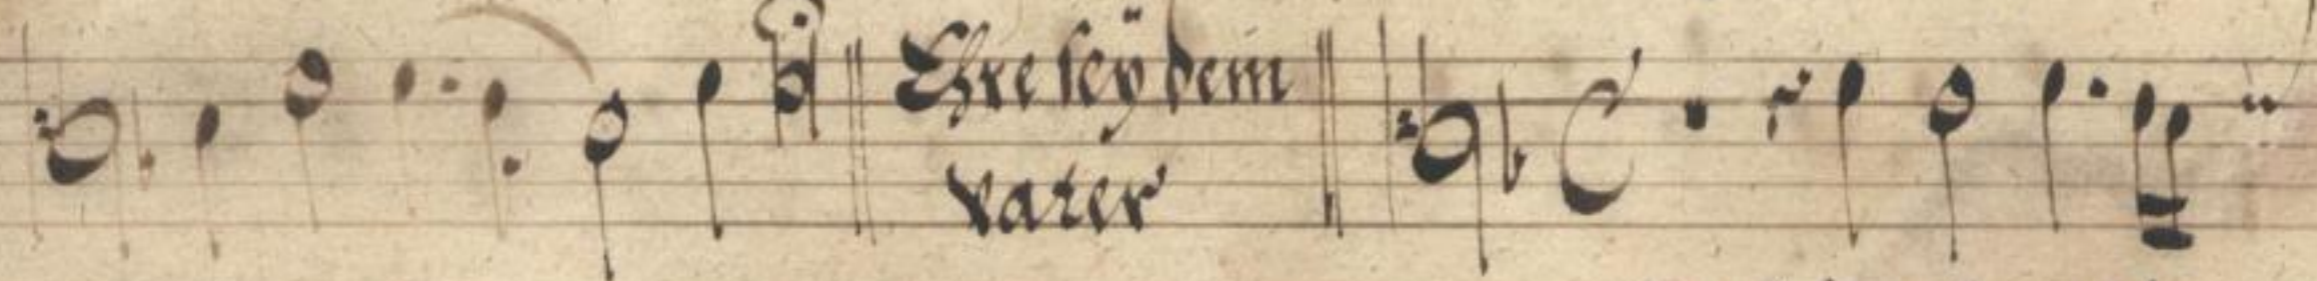 Ehre seÿ dem
vater